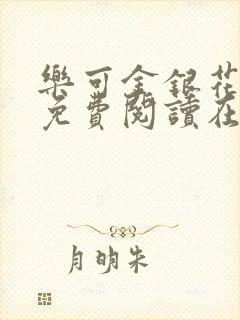 樂可金銀花
免費閱讀在
月明朱